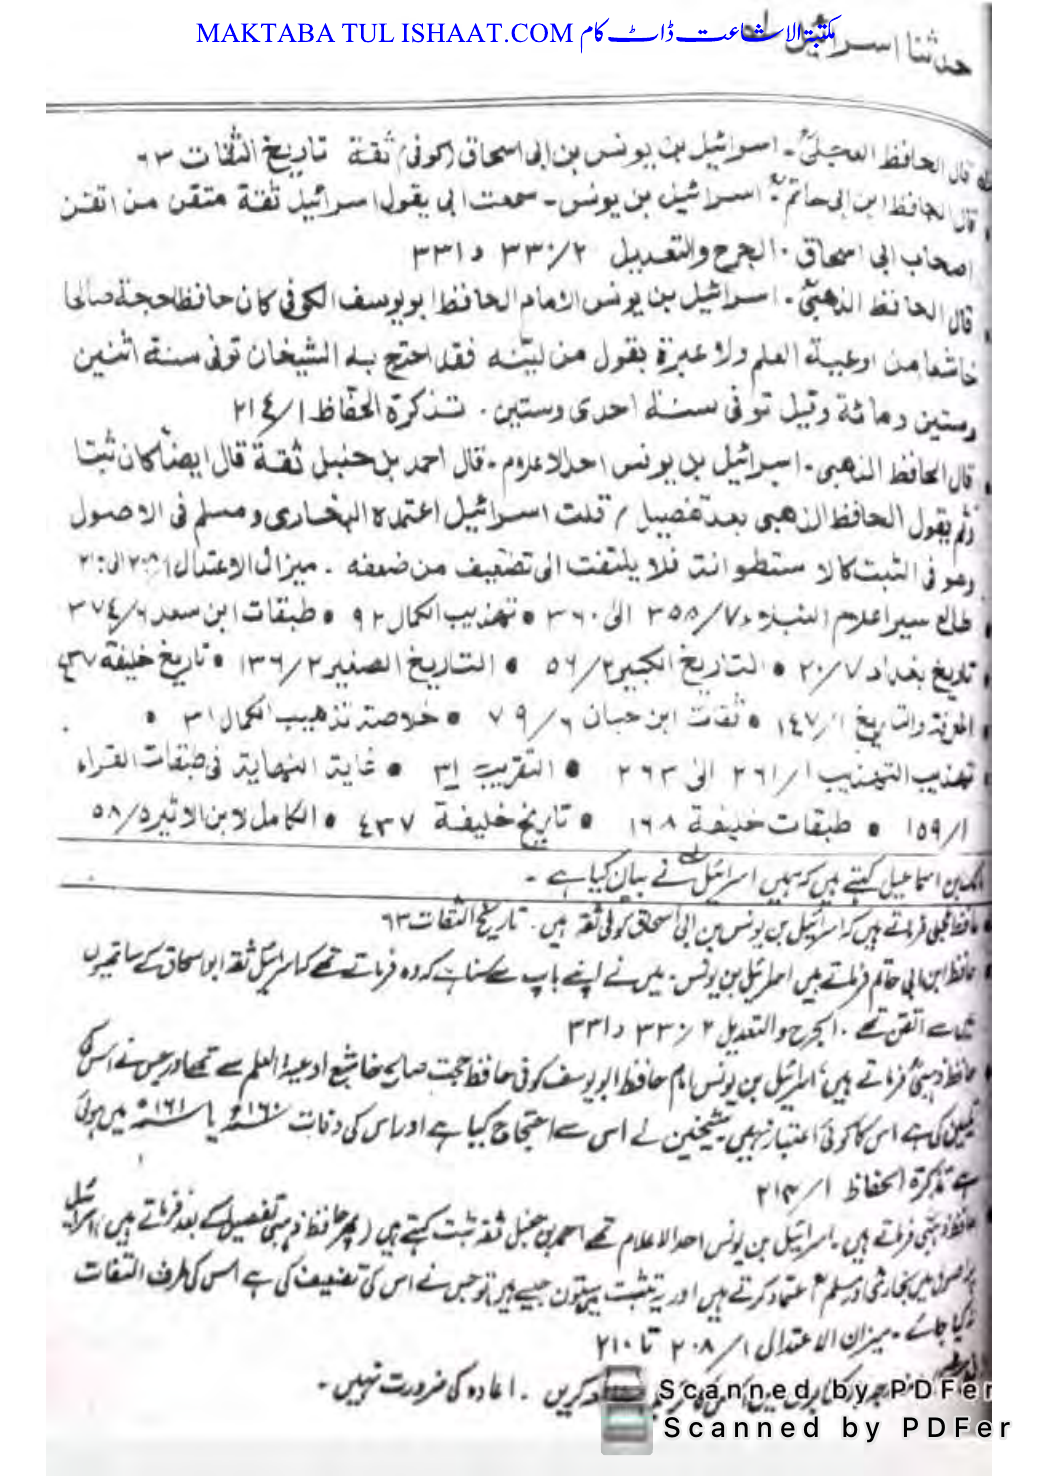 MAKTABA TUL ISHAAT.COM مکتبۃ الاشاعت ڈاٹ کام
حدثنا اسرائیل
قال الحافظ العجلیؒ۔ اسرائیل بن یونس بن ابی اسحاق (کوفی) ثقة تاریخ الثقات ٦٣
قال الحافظ ابن ابی حاتمؒ اسرائیل بن یونس۔ سمعت ابی یقول اسرائیل ثقة متقن من اتقن
اصحاب ابی اسحاق۔ الجرح والتعدیل ٢/٣٣٠ و ٣٣١
قال الحافظ الذهبیؒ۔ اسرائیل بن یونس الامام الحافظ ابو یوسف الکوفی کان حافظا حجة صالحا
خاشعا من اوعیة العلم ولا عبرة بقول من لیّنه فقد احتج به الشیخان توفی سنة اثنین
وستین ومائة وقیل توفی سنة احدی وستین۔ تذکرة الحفّاظ ١/٢١٤
قال الحافظ الذهبی۔ اسرائیل بن یونس احد الاعلام۔ قال احمد بن حنبل ثقة قال ایضا کان ثبتا
(ثم یقول الحافظ الذهبی بعد تفصیل) قلت اسرائیل اعتمده البخاری ومسلم فی الاصول
وهو فی الثبت کالاسطوانة فلا یلتفت الی تضعیف من ضعفه۔ میزان الاعتدال ١/٢٠٨ الی ٢١٠
طالع سیر اعلام النبلاء ٧/٣٥٨ الی ٣٦٠ • تهذیب الکمال ٩٢ • طبقات ابن سعد ٦/٣٧٤
تاریخ بغداد ٧/٢٠ • التاریخ الکبیر ٢/٥٦ • التاریخ الصغیر ٢/١٣٦ • تاریخ خلیفة ٤٣٧
المعرفة والتاریخ ١/١٤٧ • ثقات ابن حبان ٦/٧٩ • خلاصة تذهیب الکمال ٣١ •
تهذیب التهذیب ١/٢٦١ الی ٢٦٣ • التقریب ٣١ • غایة النهایة فی طبقات القراء
١/١٥٩ • طبقات خلیفة ١٦٨ • تاریخ خلیفة ٤٣٧ • الکامل لابن الاثیر ٥/٥٨
مالک بن اسماعیل کہتے ہیں کہ ہمیں اسرائیل نے بیان کیا ہے۔
حافظ عجلی فرماتے ہیں کہ اسرائیل بن یونس بن ابی اسحاق کوفی ثقہ ہیں۔ تاریخ الثقات ٦٣
حافظ ابن ابی حاتم فرماتے ہیں اسرائیل بن یونس۔ میں نے اپنے باپ سے سنا ہے کہ وہ فرماتے تھے کہ اسرائیل ثقہ ابو اسحاق کے ساتھیوں
میں سے اتقن تھے۔ الجرح والتعدیل ٢/٣٣٠ و ٣٣١
حافظ ذہبیؒ فرماتے ہیں، اسرائیل بن یونس امام حافظ ابو یوسف کوفی حافظ حجت صالح خاشع اوعیۃ العلم سے تھے اور جس نے اس کی
تلیین کی ہے اس کا کوئی اعتبار نہیں شیخین نے اس سے احتجاج کیا ہے اور اس کی وفات ١٦٠ھ یا ١٦١ھ میں ہوئی
ہے تذکرۃ الحفاظ ١/٢١٤
حافظ ذہبی فرماتے ہیں۔ اسرائیل بن یونس احد الاعلام تھے احمد بن حنبل ثقہ ثبت کہتے ہیں (پھر حافظ ذہبی تفصیل کے بعد فرماتے ہیں) اسرائیل
پر اصول میں بخاریؒ و مسلمؒ اعتماد کرتے ہیں اور یہ تثبت میں ستون جیسے ہیں تو جس نے اس کی تضعیف کی ہے اس کی طرف التفات
نہ کیا جائے۔ میزان الاعتدال ١/٢٠٨ تا ٢١٠
کریں۔ اعادہ کی ضرورت نہیں۔
Scanned by PDFer
Scanned by PDFer